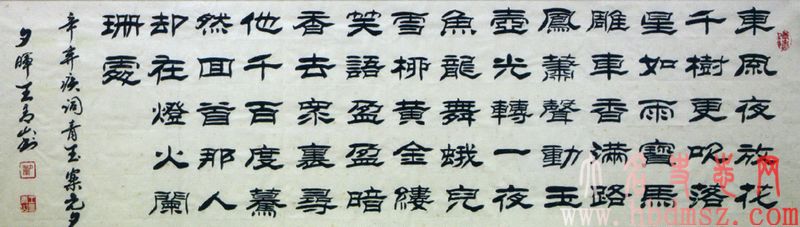 東風夜放花
千樹更吹落
星如雨寶馬
雕車香滿路
鳳蕭聲動玉
壺光轉一夜
魚龍舞蛾兒
雪柳黃金縷
笑語盈盈暗
香去衆裏尋
他千百度驀
然回首那人
却在燈火闌
珊處
辛弃疾词青玉案元夕
夕暉王
www.hbdmsz.com